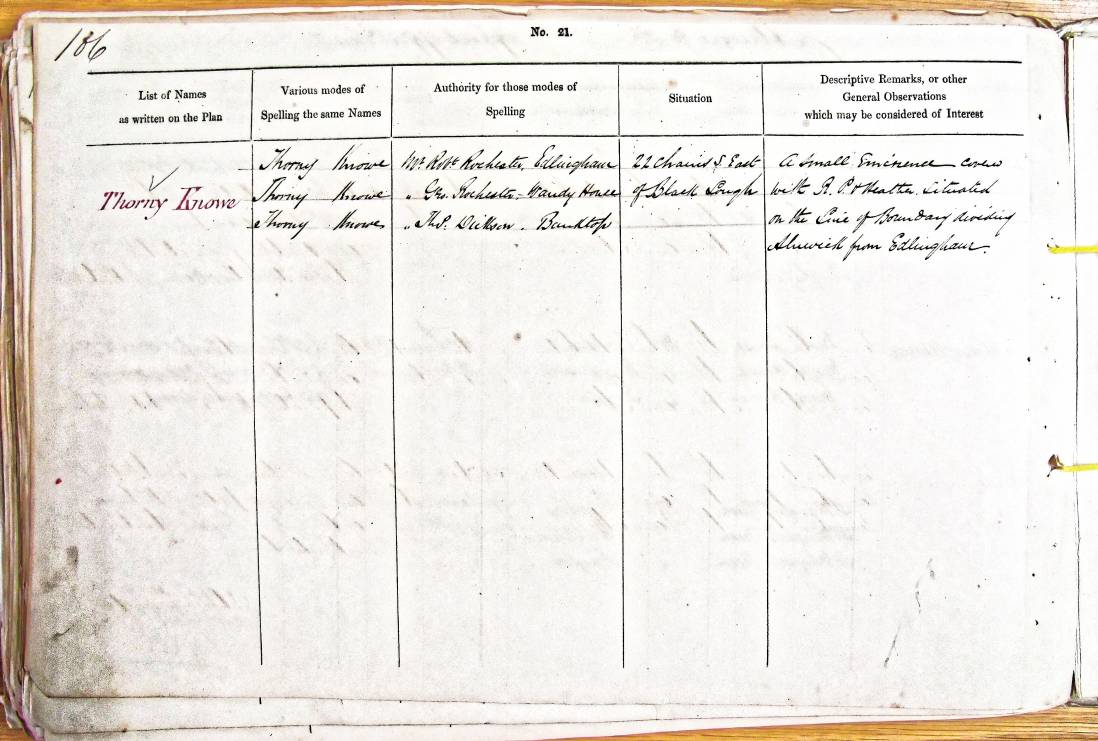 186
No. 21.
List of Names
as written on the Plan
Various modes of
Spelling the same Names
Authority for those modes of
Spelling
Situation
Descriptive Remarks, or other
General Observations
which may be considered of Interest
Thorny Knowe
Thorny Knowe
Thorny Knowe
Thorny Knowe
Mr. Robt. Rochester, Edlingham
" Geo. Rochester - Wandy House
" Thos. Dickson. Banktop
22 chains S. East
of Black Lough
A small Eminence cover
with R. P. & Heather. Situated
on the Line of Boundary dividing
Alnwick from Edlingham.